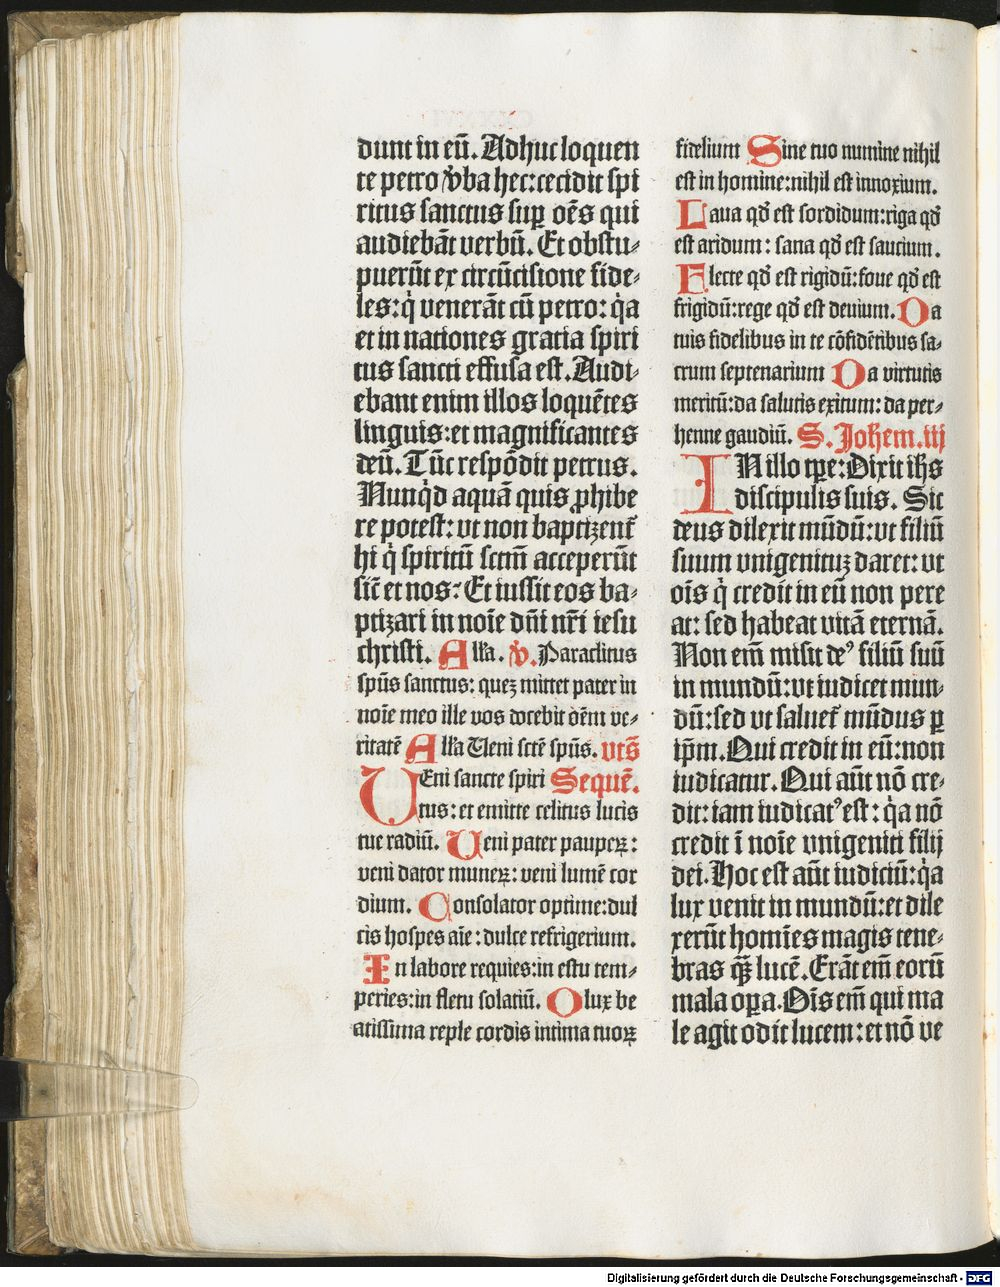 dunt in eū. Adhuc loquen
te petro v̾ba hec: cecidit spi
ritus sanctus sup̱ oēs qui
audiebāt verbū. Et obstu⸗
puerūt ex circūcisione fide⸗
les: q̇ venerāt cū petro: q̇a
et in nationes gratia spiri
tus sancti effusa est. Audi⸗
ebant enim illos loquētes
linguis: et magnificantes
deū. Tūc respōdit petrus.
Nunq̇d aquā quis ꝓhibe
re potest: vt non baptizent᷑
hi q̇ spiritū sctm̄ acceperūt
sic̄ et nos: Et iussit eos ba⸗
ptizari in noīe dn̄i nr̄i iesu
christi. All'a. v̾. Paraclitus
spūs sanctus: quez mittet pater in
noīe meo ille vos docebit oēm ve⸗
ritatē All'a Veni sctē spūs. vts̄
VEni sancte spiri Sequē.
tus: et emitte celitus lucis
tue radiū. Veni pater pauperꝝ:
veni dator munerꝝ: veni lumē cor
dium. Consolator optime: dul
cis hospes aīe: dulce refrigerium.
In labore requies: in estu tem⸗
peries: in fletu solatiū. O lux be
atissima reple cordis intima tuoꝝ
fidelium Sine tuo numine nihil
est in homine: nihil est innoxium.
Laua qd̄ est sordidum: riga qd̄
est aridum: sana qd̄ est saucium.
Flecte qd̄ est rigidū: foue qd̄ est
frigidū: rege qd̄ est deuium. Da
tuis fidelibus in te cōfidētibus sa⸗
crum septenarium Da virtutis
meritū: da salutis exitum: da per⸗
henne gaudiū. S. Johem. iij
IN illo tꝑe: Dixit ih̄s
discipulis suis. Sic
deus dilexit mūdū: vt filiū
suum vnigenituz daret: vt
oīs q̇ credit in eū non pere
at: sed habeat vitā eternā.
Non em̄ misit deꝰ filiū suū
in mundū: vt iudicet mun⸗
dū: sed vt saluet᷑ mūdus ꝑ
ip̄m. Qui credit in eū: non
iudicatur. Qui aūt nō cre⸗
dit: iam iudicatꝰ est: q̇a nō
credit ī noīe vnigeniti filij
dei. Hoc est aūt iudiciū: q̇a
lux venit in mundū: et dile
xerūt homīes magis tene⸗
bras qꝫ̄ lucē. Erāt em̄ eorū
mala oꝑa. Oīs em̄ qui ma
le agit odit lucem: et nō ve
Digitalisierung gefördert durch die Deutsche Forschungsgemeinschaft - DFG